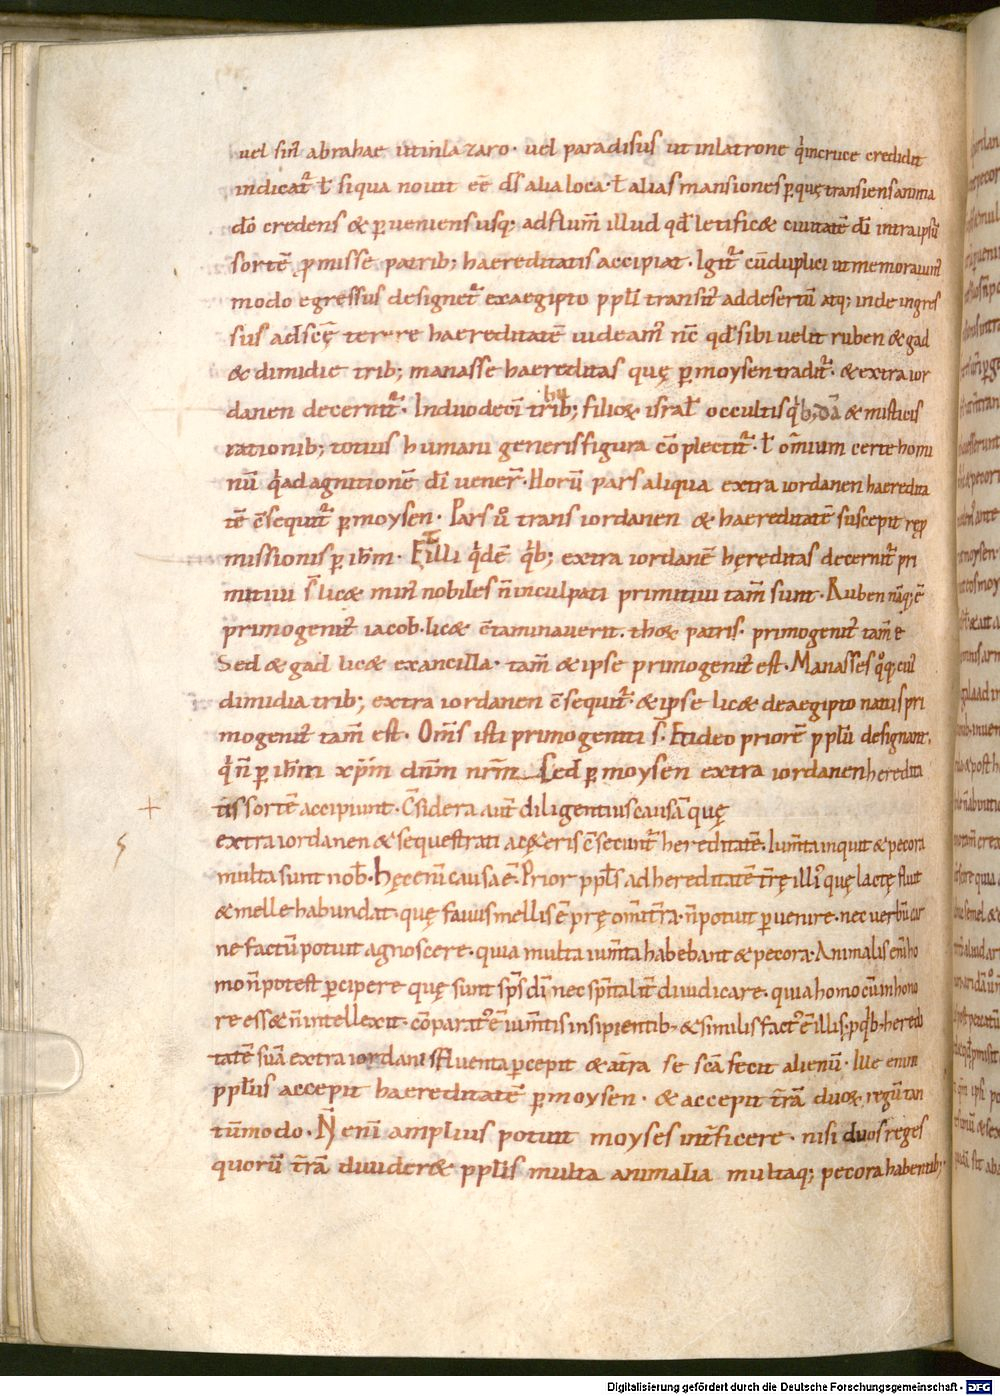 uel sin̄ abrahae ut in lazaro· uel paradisus ut in latrone q̇ in cruce credidit
indicat᷑ ł siqua nouit eē d̄s alia loca· ł alias mansiones ꝑ quę transiens anima
dō credens & ꝑueniens usq; ad flum̄ illud qđ letific& ciuitatē dī intra ipsū
sortē ꝓmisse patrib; haereditatis accipiat· Igit᷑ cū duplici ut memorauim᷒
modo egressus designet᷑ ex aegipto pplī transit᷒ ad desertū atq; inde ingres
sus ad sc̄ę terre haereditatē uideam᷒ nc̄ qđ sibi uelit ruben & gad
& dimidie trib; manasse haereditas quę ꝑ moysen tradit᷑· & extra ior
danen decernit᷑· In duodeci᷒ tribu; filioȩ israł occultis q̇b;dā & misticis
rationib; totius humani generis figura cōplectit᷑· ł om̄ium certe homi
nū q̇ ad agnitionē dī uener̄· Horū pars aliqua extra iordanen haeredita
tē c̄sequit᷑ ꝑ moysen· Pars ů trans iordanen & haereditatē suscepit repro
missionis ꝑ ihm̄· Et illi q̇dē q̇b; extra iordanē hęreditas decernit᷑ pri
mitiui s̄ lic& min᷒ nobiles n̄ inculpati primitiui tam̄ sunt· Ruben nāq; ē
primogenit᷒ iacob· lic& c̄taminauerit· tho& patris· primogenit᷒ tam̄ ē
Sed & gad lic& ex ancilla· tam̄ & ipse primogenit᷒ est· Manasses q°q; cui᷒
dimidia trib; extra iordanen c̄sequit᷑· & ipse lic& de aegipto natus pri
mogenit᷒ tam̄ est· Om̄s isti primogeniti s̄· Et ideo priorē pplū designant·
q̇ n̄ ꝑ ihm̄ xp̄m dn̄m nr̄m Sed ꝑ moysen extra iordanen heredita
tis sortē accipiunt· C̄sidera aut̄ diligentius causā quę
extra iordanen & sequestrati a c&eris c̄secunt᷑ hereditatē· Ium̄ta inquit & pecora
multa sunt nob̄· hęc eni᷒ causa ē· Prior ppl̄s ad hereditatē tr̄ę illi᷒ quę lactę fluit
& melle habundat· quę fauus mellis ē prę om̄i tr̄a· n̄ potuit ꝑuenire· nec uerbū car
ne factū potuit agnoscere· quia multa ium̄ta habebant & pecora· Animalis eni᷒ ho
mo n̄ potest ꝑcipere quę sunt sp̄s dī nec sp̄italit᷑ diiudicare· quia homo cū in hono
re ess& n̄ intellexit· cōparat᷒ ē ium̄tis insipientib· & similis fact᷒ ē illis; ꝓ q̇b· heredi
tatē suā extra iordanis fluenta ꝑcepit & a tr̄a se sc̄a fecit alienū· Ille enim
ppl̄us accepit haereditatē ꝑ moysen· & accepit tr̄ā duo& regū tan
tūmodo· N̄ eni᷒ amplius potuit moyses int̄ficere· nisi duos reges
quorū tr̄ā diuider& ppl̄is multa animalia multaq; pecora habentib;
+
Digitalisierung gefördert durch die Deutsche Forschungsgemeinschaft - DFG